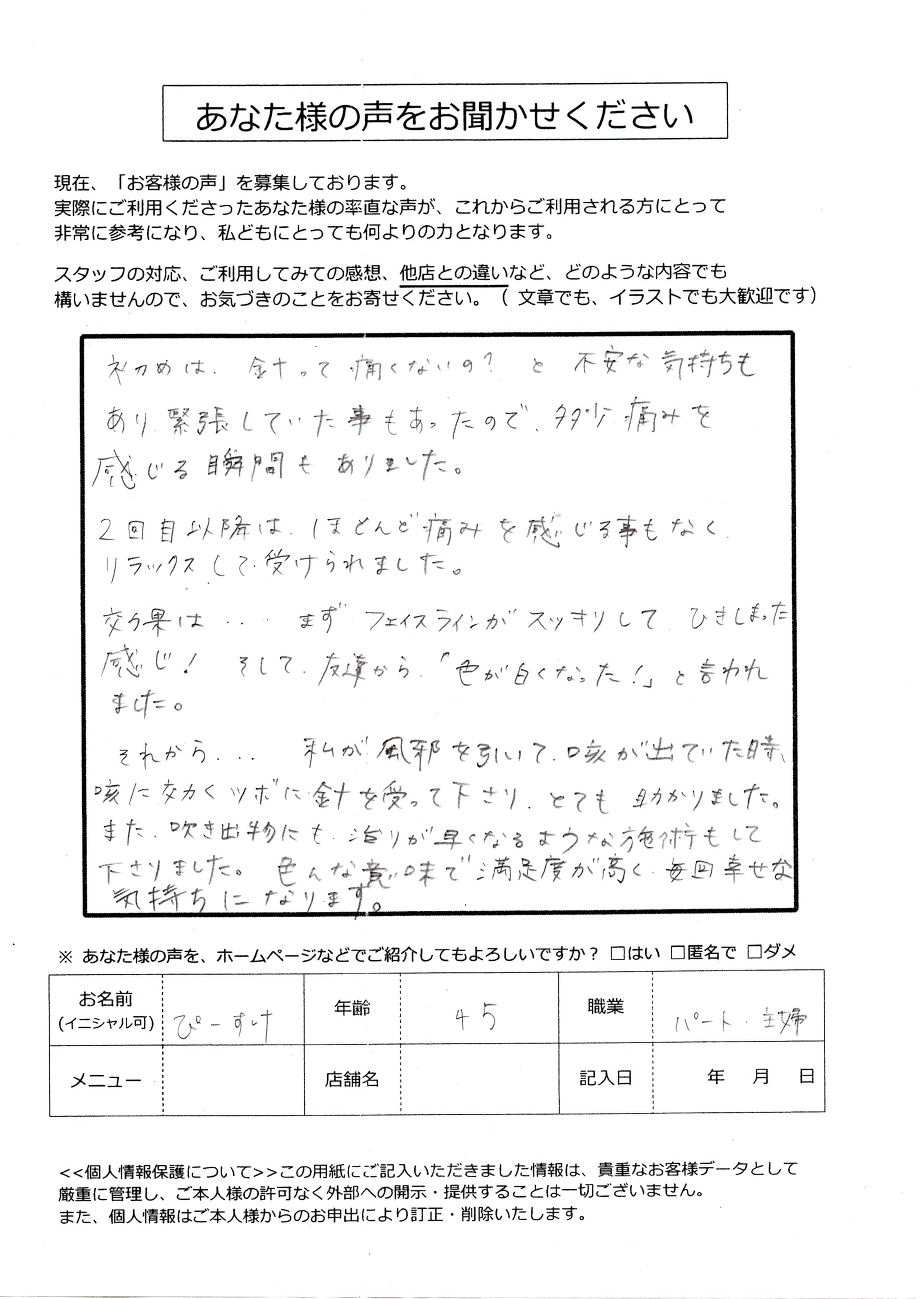 あなた様の声をお聞かせください
現在、「お客様の声」を募集しております。
実際にご利用くださったあなた様の率直な声が、これからご利用される方にとって
非常に参考になり、私どもにとっても何よりの力となります。
スタッフの対応、ご利用してみての感想、他店との違いなど、どのような内容でも
構いませんので、お気づきのことをお寄せください。（ 文章でも、イラストでも大歓迎です）
初めは、針って痛くないの？と 不安な気持ちも
あり、緊張していた事もあったので、多少痛みを
感じる瞬間も ありました。
2回目以降は、ほとんど痛みを感じる事もなく
リラックスして受けられました。
効果は・・・ まず フェイスラインがスッキリして ひきしまった
感じ！ そして、友達から、「色が白くなった！」と言われ
ました。
それから... 私が風邪を引いて、咳が出ていた時、
咳に効くツボに針を受って下さり、とても 助かりました。
また、吹き出物にも、治りが早くなるような施術もして
下さりました。 色んな意味で満足度が高く、毎回幸せな
気持ちになります。
※ あなた様の声を、ホームページなどでご紹介してもよろしいですか？ □はい □匿名で □ダメ
お名前
(イニシャル可) ぴーすけ 年齢 45 職業 パート・主婦
メニュー 店舗名 記入日 年 月 日
<<個人情報保護について>>この用紙にご記入いただきました情報は、貴重なお客様データとして
厳重に管理し、ご本人様の許可なく外部への開示・提供することは一切ございません。
また、個人情報はご本人様からのお申出により訂正・削除いたします。